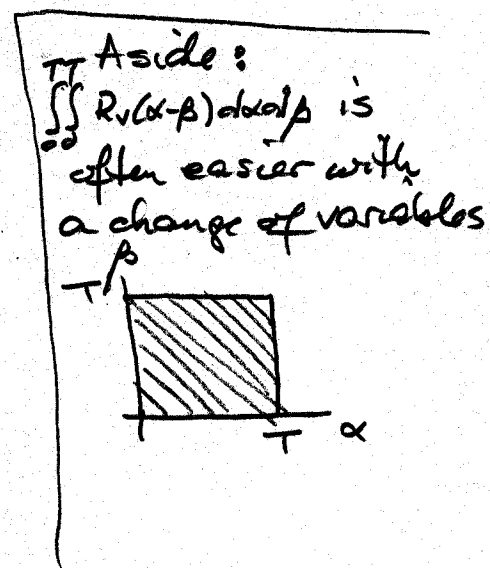 Aside:
∫₀ᵀ∫₀ᵀ Rv(α-β)dαdβ is
often easier with
a change of variables
β
T
T α